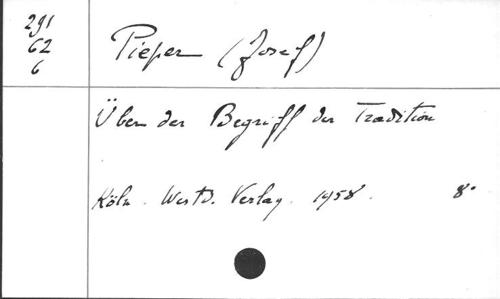 291
62
6
Pieper (Josef)
Über der Begriff der Tradition
Köln. Westd. Verlag. 1958. 8°